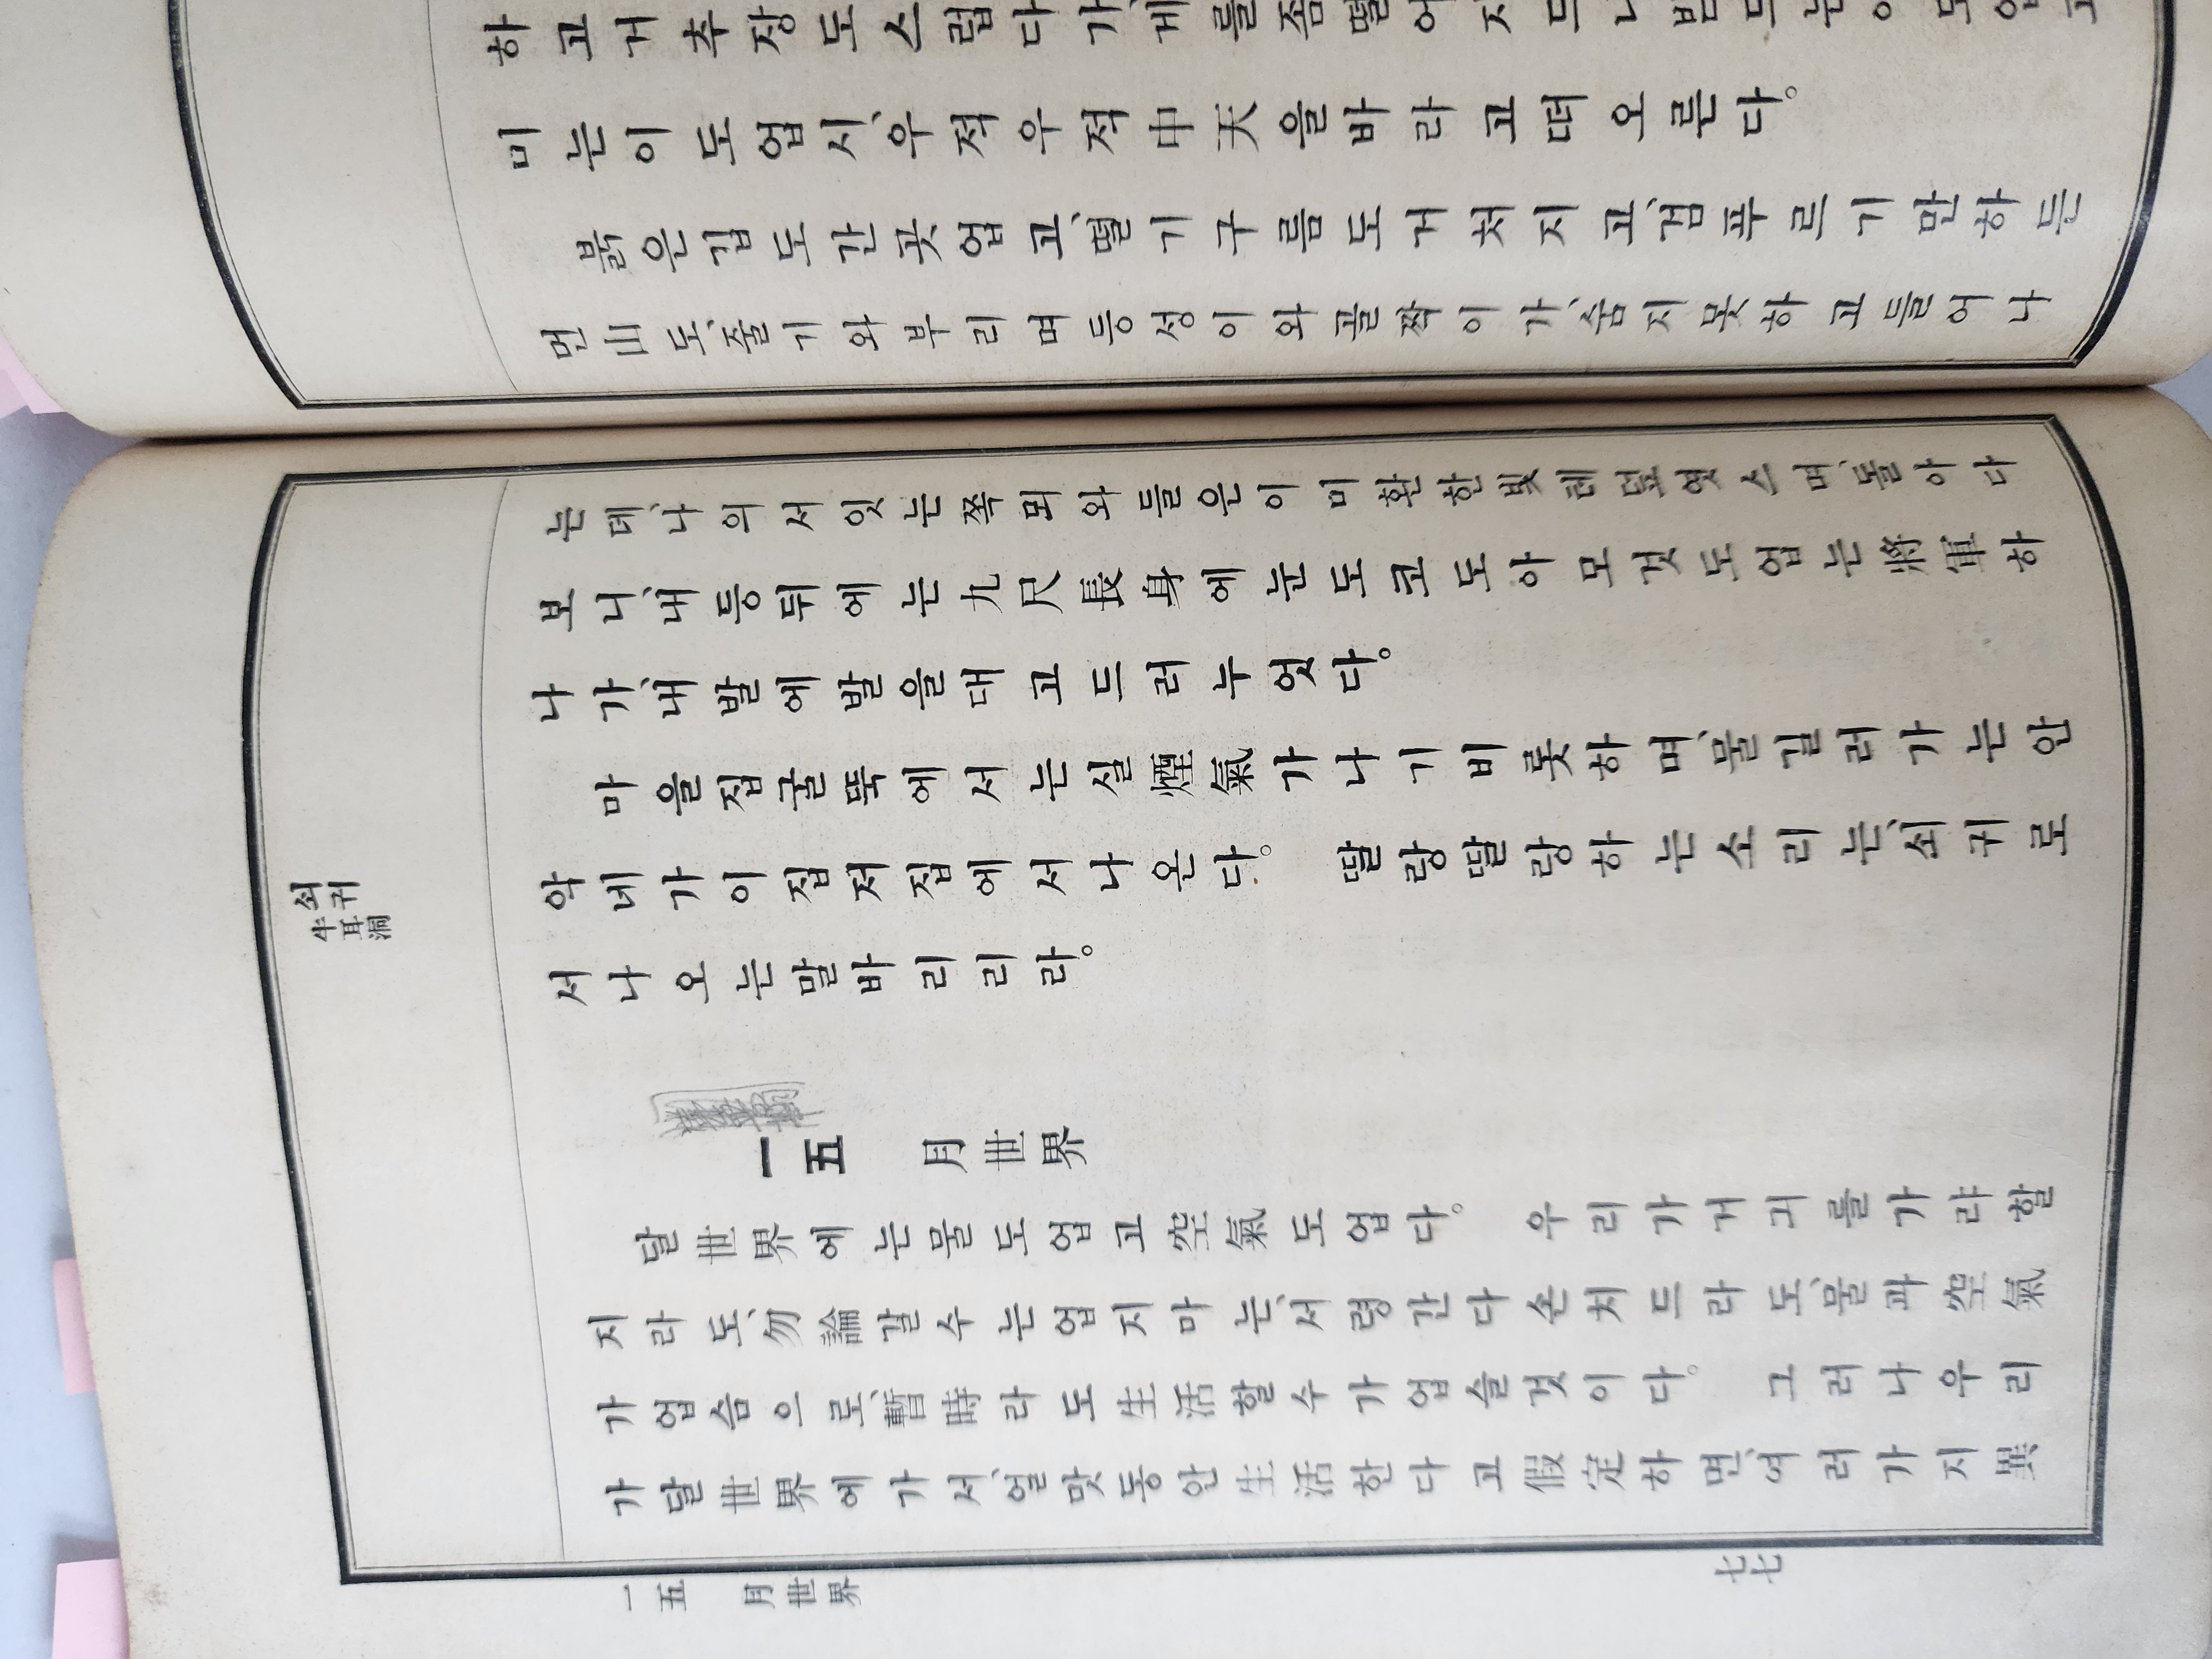 하고거추장도스럽다가、
미는이도업시、우적우적中天을바라고떠오른다。
붉은깁도간곳업고、떨기구름도거처지고、검푸르기만하든
먼山도、줄기와부리며등성이와골짝이가、숨지못하고들어나
는데、나의서잇는쪽뫼와들은이미환한빛레덥혓스며、돌아다
보니、내등뒤에는九尺長身에눈도코도아모것도업는將軍하
나가、내발에발을대고드러누엇다。
마을집굴뚝에서는실煙氣가나기비롯하며、물길러가는안
악네가이집저집에서나온다。 딸랑딸랑하는소리는、쇠귀로
쇠귀
牛耳洞
서나오는말바리리라。
一五 月世界
달世界에는물도업고空氣도업다。 우리가거긔를가랴할
지라도、勿論갈수는업지마는、서령간다손처드라도、물과空氣
가업슴으로、暫時라도生活할수가업슬것이다。 그러나우리
가달世界에가서、얼맛동안生活한다고假定하면、여러가지異
一五 月世界
七七